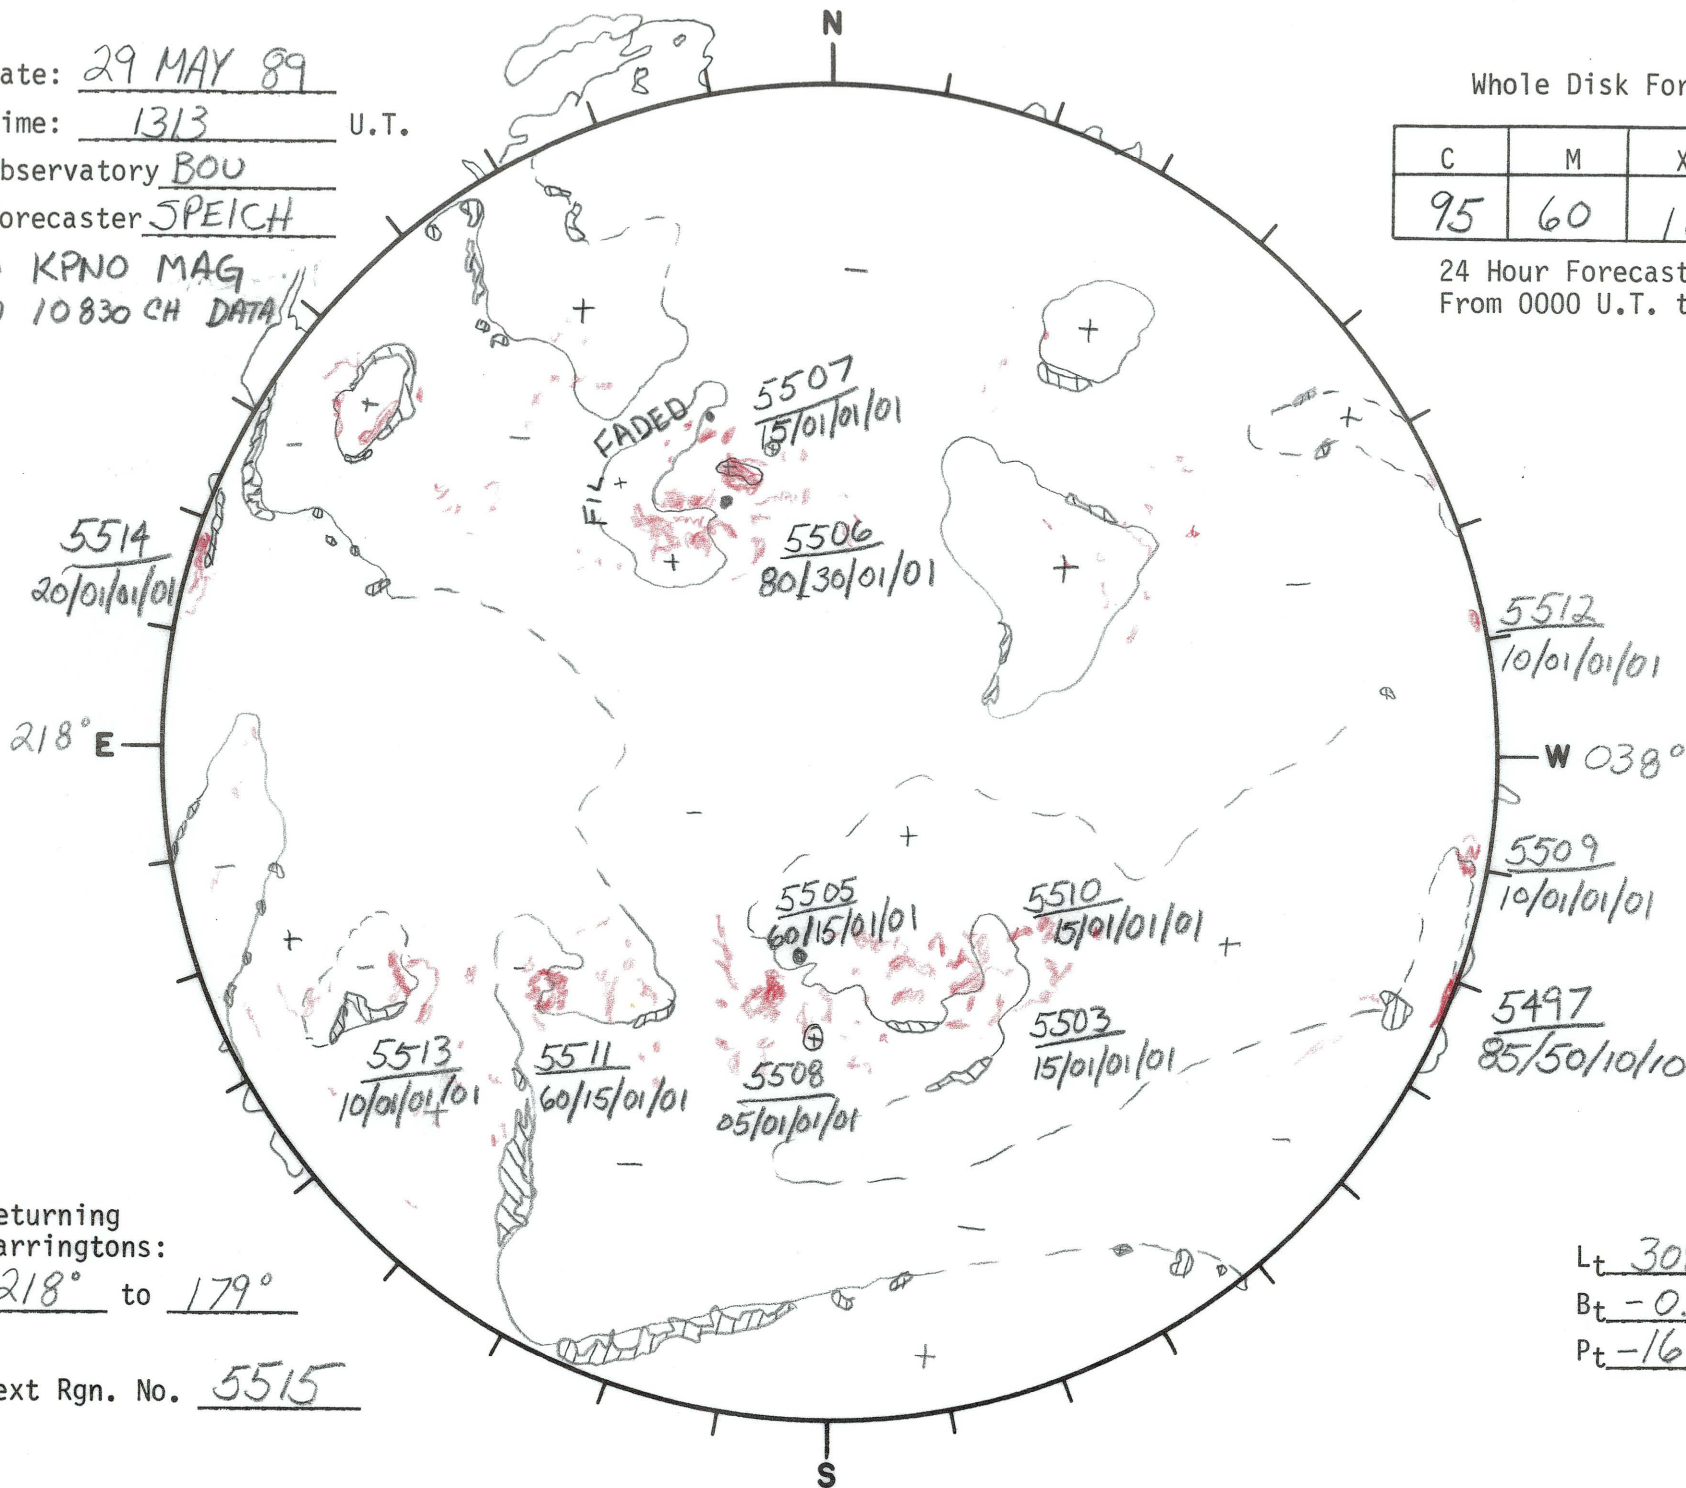 N
ate: 29 MAY 89
ime: 1313 U.T.
bservatory BOU
orecaster SPEICH
KPNO MAG
10830 CH DATA
Whole Disk For
C M X
95 60
24 Hour Forecast
From 0000 U.T. t
5507
15/01/01/01
FIL FADED
5506
80/30/01/01
5514
20/01/01/01
5512
10/01/01/01
218° E
W 038°
5509
10/01/01/01
5505
60/15/01/01
5510
15/01/01/01
5497
85/50/10/10
5503
15/01/01/01
5513
10/01/01/01
5511
60/15/01/01
5508
05/01/01/01
eturning
arringtons:
218° to 179°
ext Rgn. No. 5515
Lt 30
Bt -0.
Pt -16
S